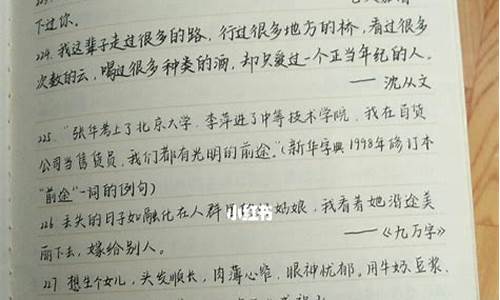 下过你。
224. 我这辈子走过很多的路，行过很多地方的桥，看过很多
次数的云，喝过很多种类的酒，却只爱过一个正当年纪的人。
——沈从文
225. "张华考上了北京大学，李萍进了中等技术学院，我在百货
公司当售货员，我们都有光明的前途。"（新华字典1998年修订本
"前途"一词的例句）
226 丢失的日子如融化在人群里的姑娘，我看着她沿途美
小红书
丽下去，嫁给别人。
——《九万字》
227 想生个女儿，头发顺长，肉薄心
眼神忧郁。用牛奶豆浆、